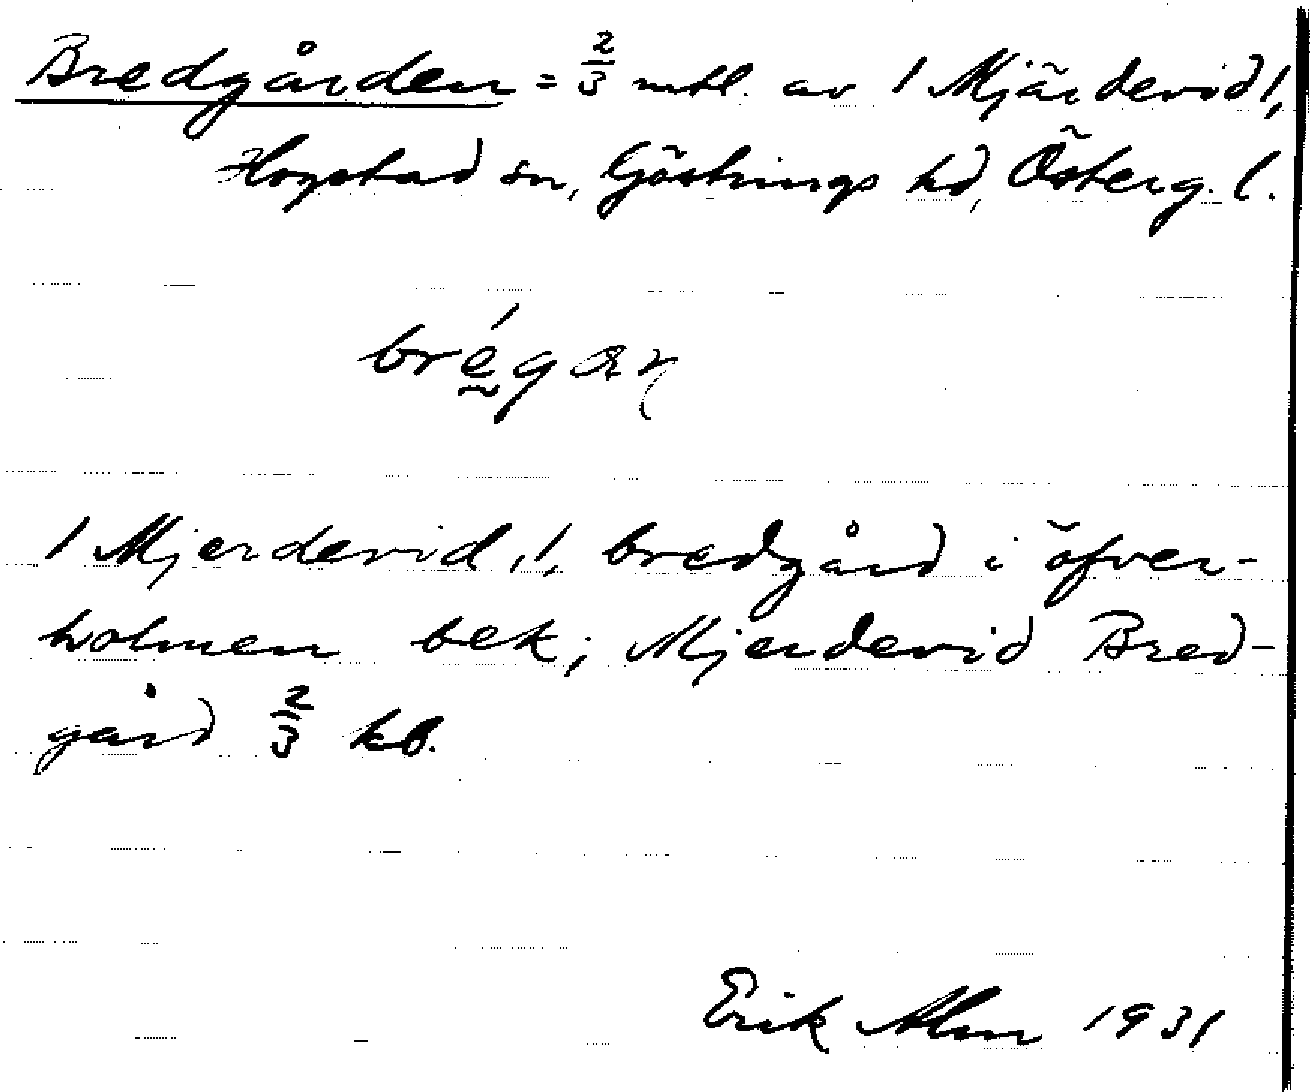 Bredgården = 2/3 mtl. av / Mjärdevid /,
Hogstad sn, Göstrings hd, Österg. l.
brḛ́gaɳ
/ Mjerdevid, /, bredgård i öfver-
holmen bek; Mjerdevid Bred-
gård 2/3 kB.
Erik Alm 1931